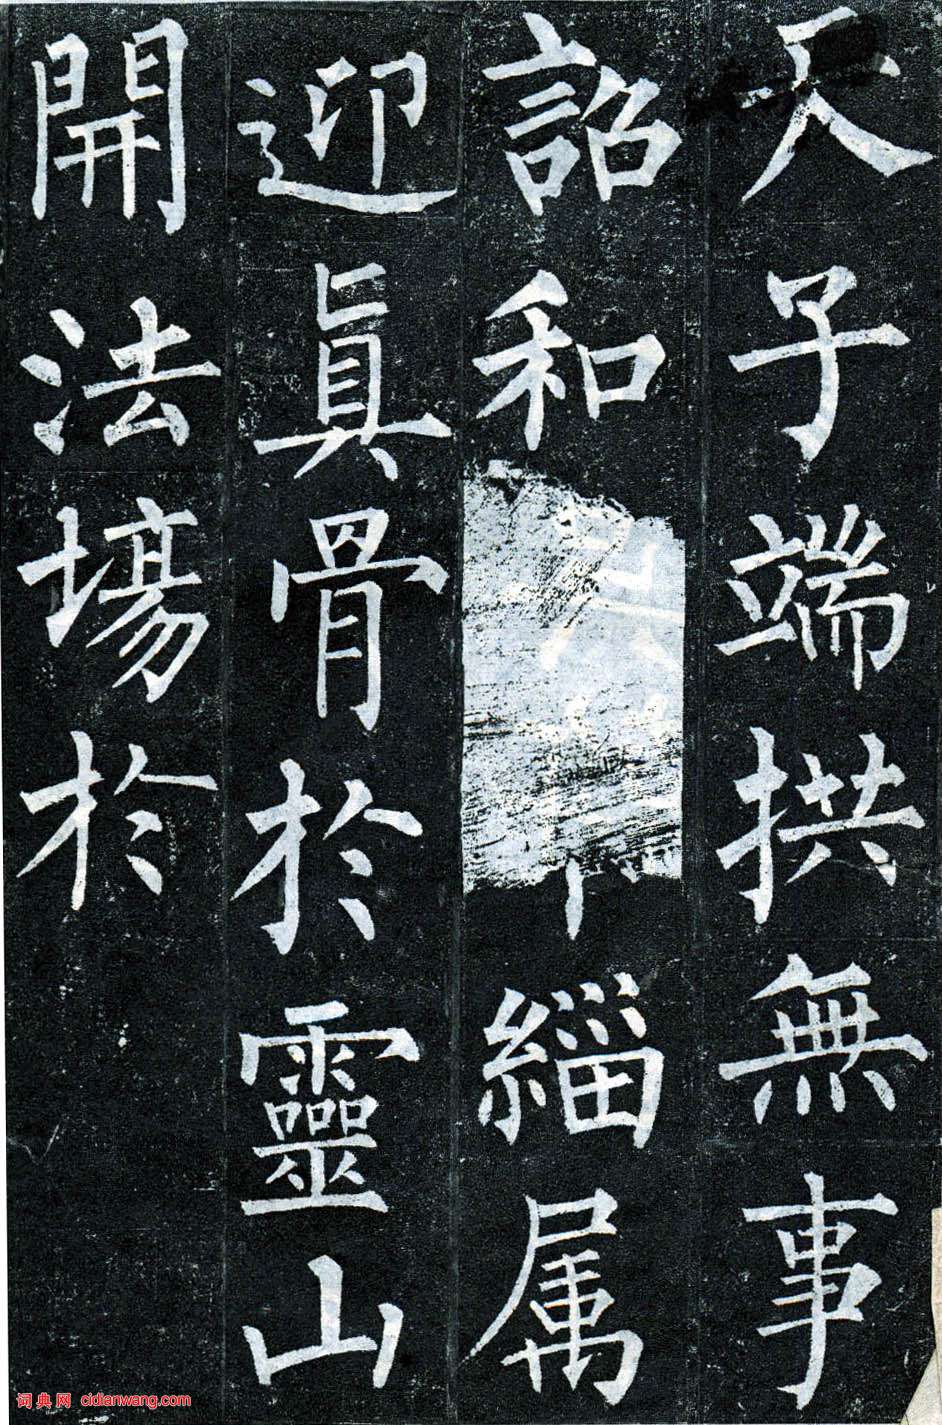 天子端拱無事
詔和緇属
迎真骨於靈山
開法場於
词典网 cidianwang.com